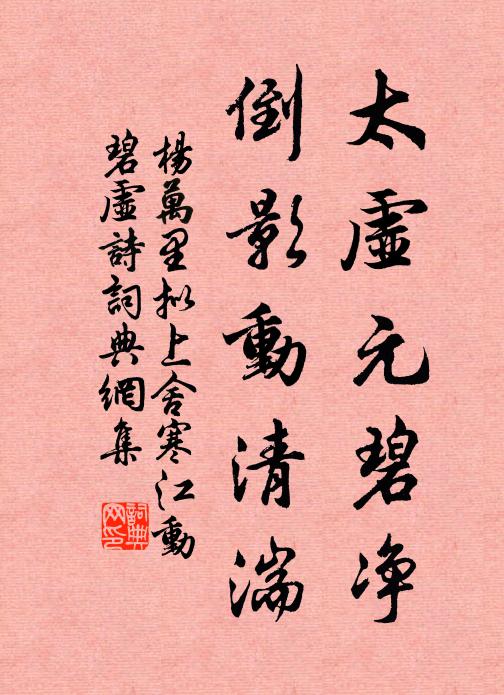 太虛元碧净
倒影動清湍
楊萬里拟上舍寒江動
碧虛詩詞典網集
詞典
网印